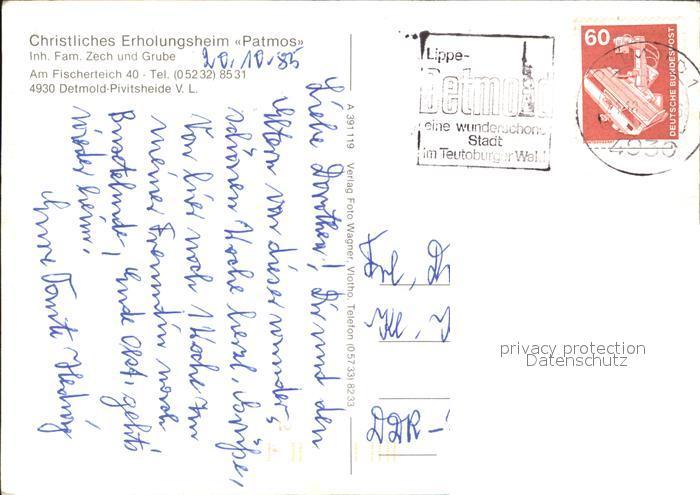 Christliches Erholungsheim «Patmos»
Inh. Fam. Zech und Grube
Am Fischerteich 40 - Tel. (05232) 8531
4930 Detmold-Pivitsheide V. L.
20.10.85
Liebe Dorothea! Dir und den
Eltern von dieser wunder-
schönen Woche herzl. Grüße,
Von hier noch 1 Woche zu
meiner Freundin nach
Buxtehude, Ende Okt. gehts
wieder heim,
Eure Tante Hedwig
A 391119 Verlag Foto Wagner, Vlotho, Telefon (05733) 8233
Lippe-
Detmold
eine wunderschöne
Stadt
im Teutoburger Wald
60
DEUTSCHE BUNDESPOST
4930
Frl,
Kl,
DDR -
privacy protection
Datenschutz